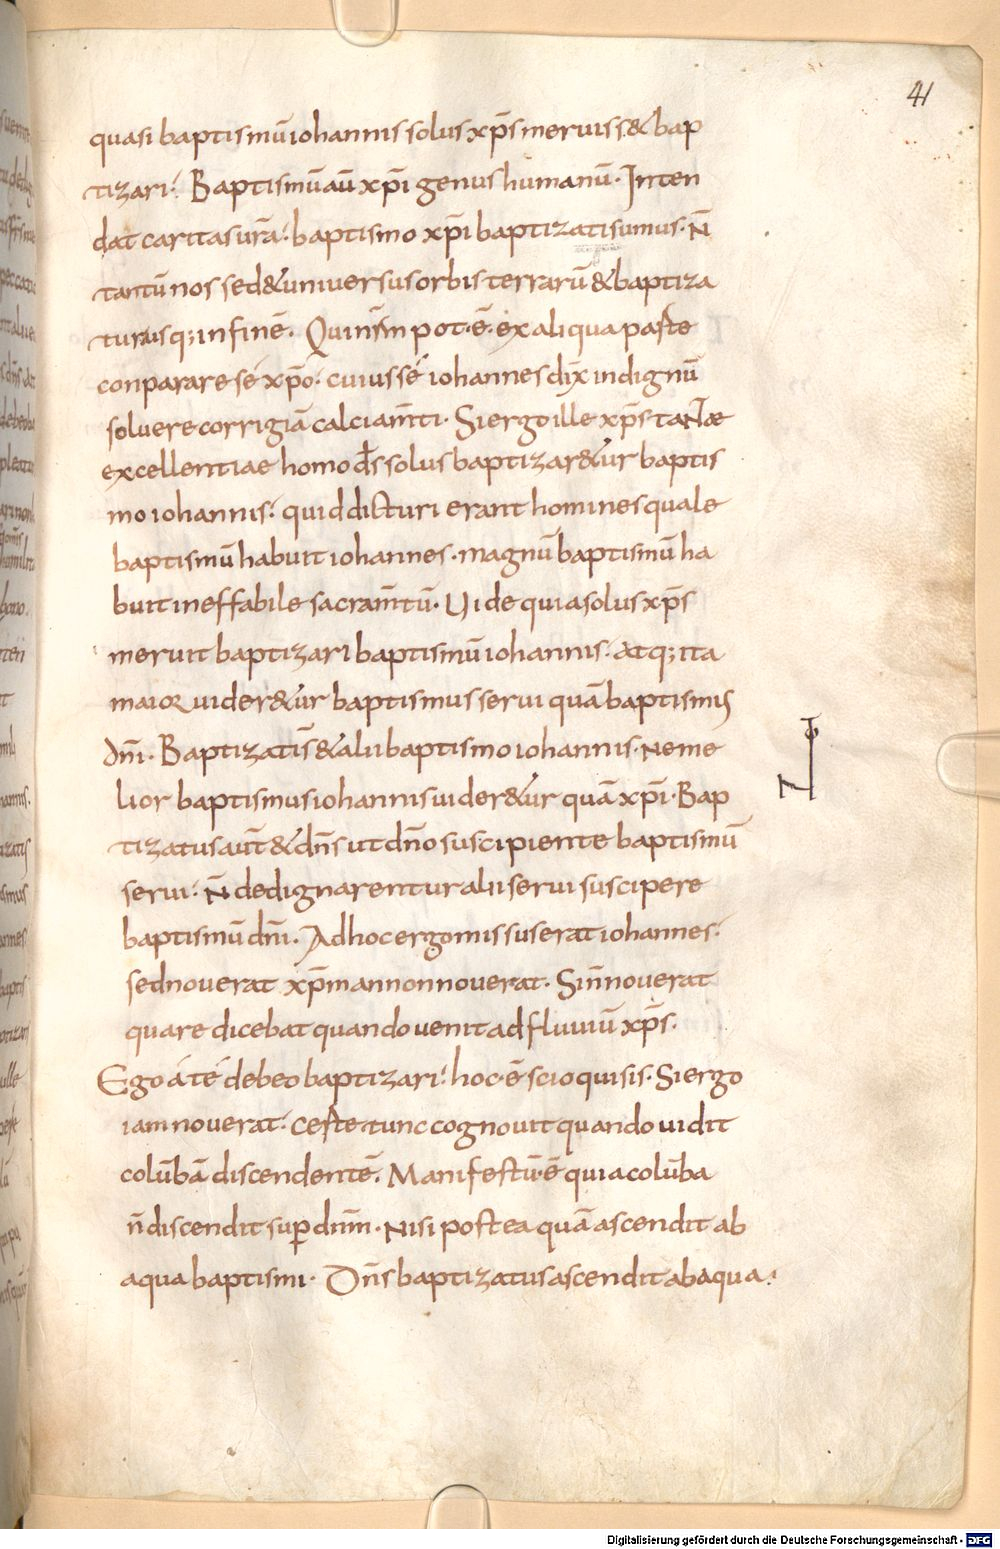 41
quasi baptismū iohannis solus xp̄s meruiss& bap
tizari. Baptismū aū xp̄i genus humanū. Inten
dat caritas ur̄a. baptismo xp̄i baptizati sumus. N̄
tantū nos sed & universus orbis terrarū & baptiza
turusq; in finē. Qui nīm pot ē. ex aliqua parte
conparare sé xp̄o. cuius sé iohannes dix̄ indignū
solvere corrigiā calciam̄ti. Si ergo ille xp̄s tantæ
excellentiae homo d̄s solus baptizar&ur baptis
mo iohannis. quid dicturi erant homines quale
baptismū habuit iohannes. magnū baptismū ha
buit ineffabile sacram̄tū. Uide quia solus xp̄s
meruit baptizari baptismū iohannis. atq; ita
maior uider&ur baptismus serui quā baptismus
dn̄i. Baptizatis̄ & alii baptismo iohannis. ne me
lior baptismus iohannis uider&ur quā xp̄i. Bap
tizatus aūt & dn̄s ut dn̄o suscipiente baptismū
serui. n̄ dedignarentur alii serui suscipere
baptismū dn̄i. Ad hoc ergo missus erat iohannes.
sed noverat xp̄m an non noverat. Si n̄ noverat
quare dicebat quando venit ad fluviū xp̄s.
Ego á té debeo baptizari. hoc ē scio qui sis. Si ergo
iam noverat. certe tunc cognovit quando vidit
colūbā discendentē. Manifestū ē quia colūba
n̄ discendit sup̱ dnm̄. Nisi postea quā ascendit ab
aqua baptismi. Dn̄s baptizatus ascendit ab aqua.
Digitalisierung gefördert durch die Deutsche Forschungsgemeinschaft - DFG